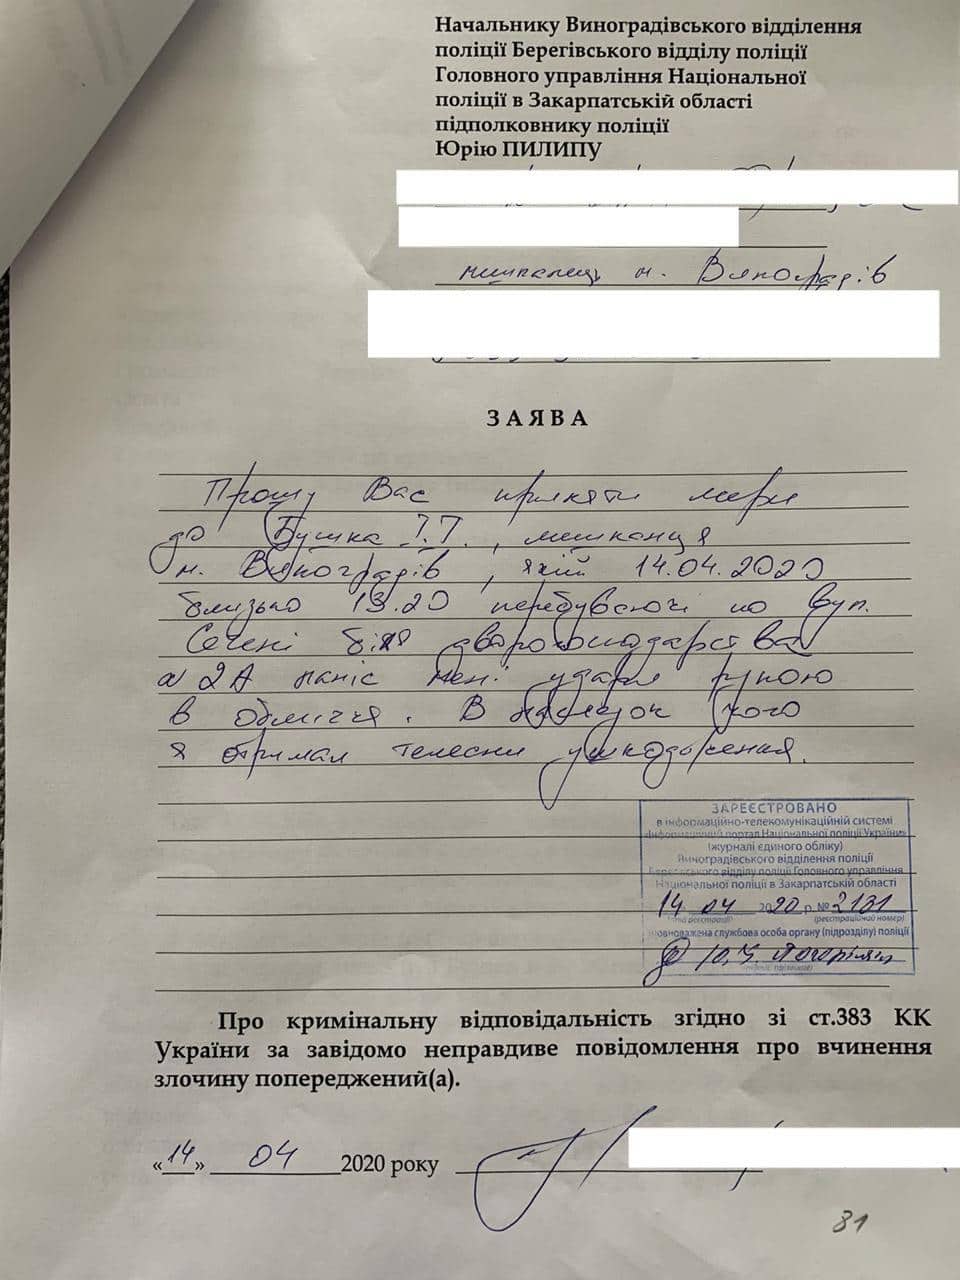 Начальнику Виноградівського відділення
поліції Берегівського відділу поліції
Головного управління Національної
поліції в Закарпатській області
підполковнику поліції
Юрію ПИЛИПУ
мешканець м. Виноградів
ЗАЯВА
Прошу Вас прияняти мери
до Бушка І.І., мешканця
м. Виноградів, який 14.04.2020
близько 13.20 перебуваючі по вул.
Сечені біля домогосподарства
№ 2А наніс мені удари рукою
в обличчя. В наслідок чого
я отримал телесни ушкодження.
ЗАРЕЄСТРОВАНО
в інформаційно-телекомунікаційній системі
«Інформаційний портал Національної поліції України»
(журналі єдиного обліку)
Виноградівського відділення поліції
Берегівського відділу поліції Головного управління
Національної поліції в Закарпатській області
14 04 2020 р. № 2131
(дата реєстрації) (реєстраційний номер)
уповноважена службова особа органу (підрозділу) поліції
Про кримінальну відповідальність згідно зі ст.383 КК
України за завідомо неправдиве повідомлення про вчинення
злочину попереджений(а).
«14» 04 2020 року
81